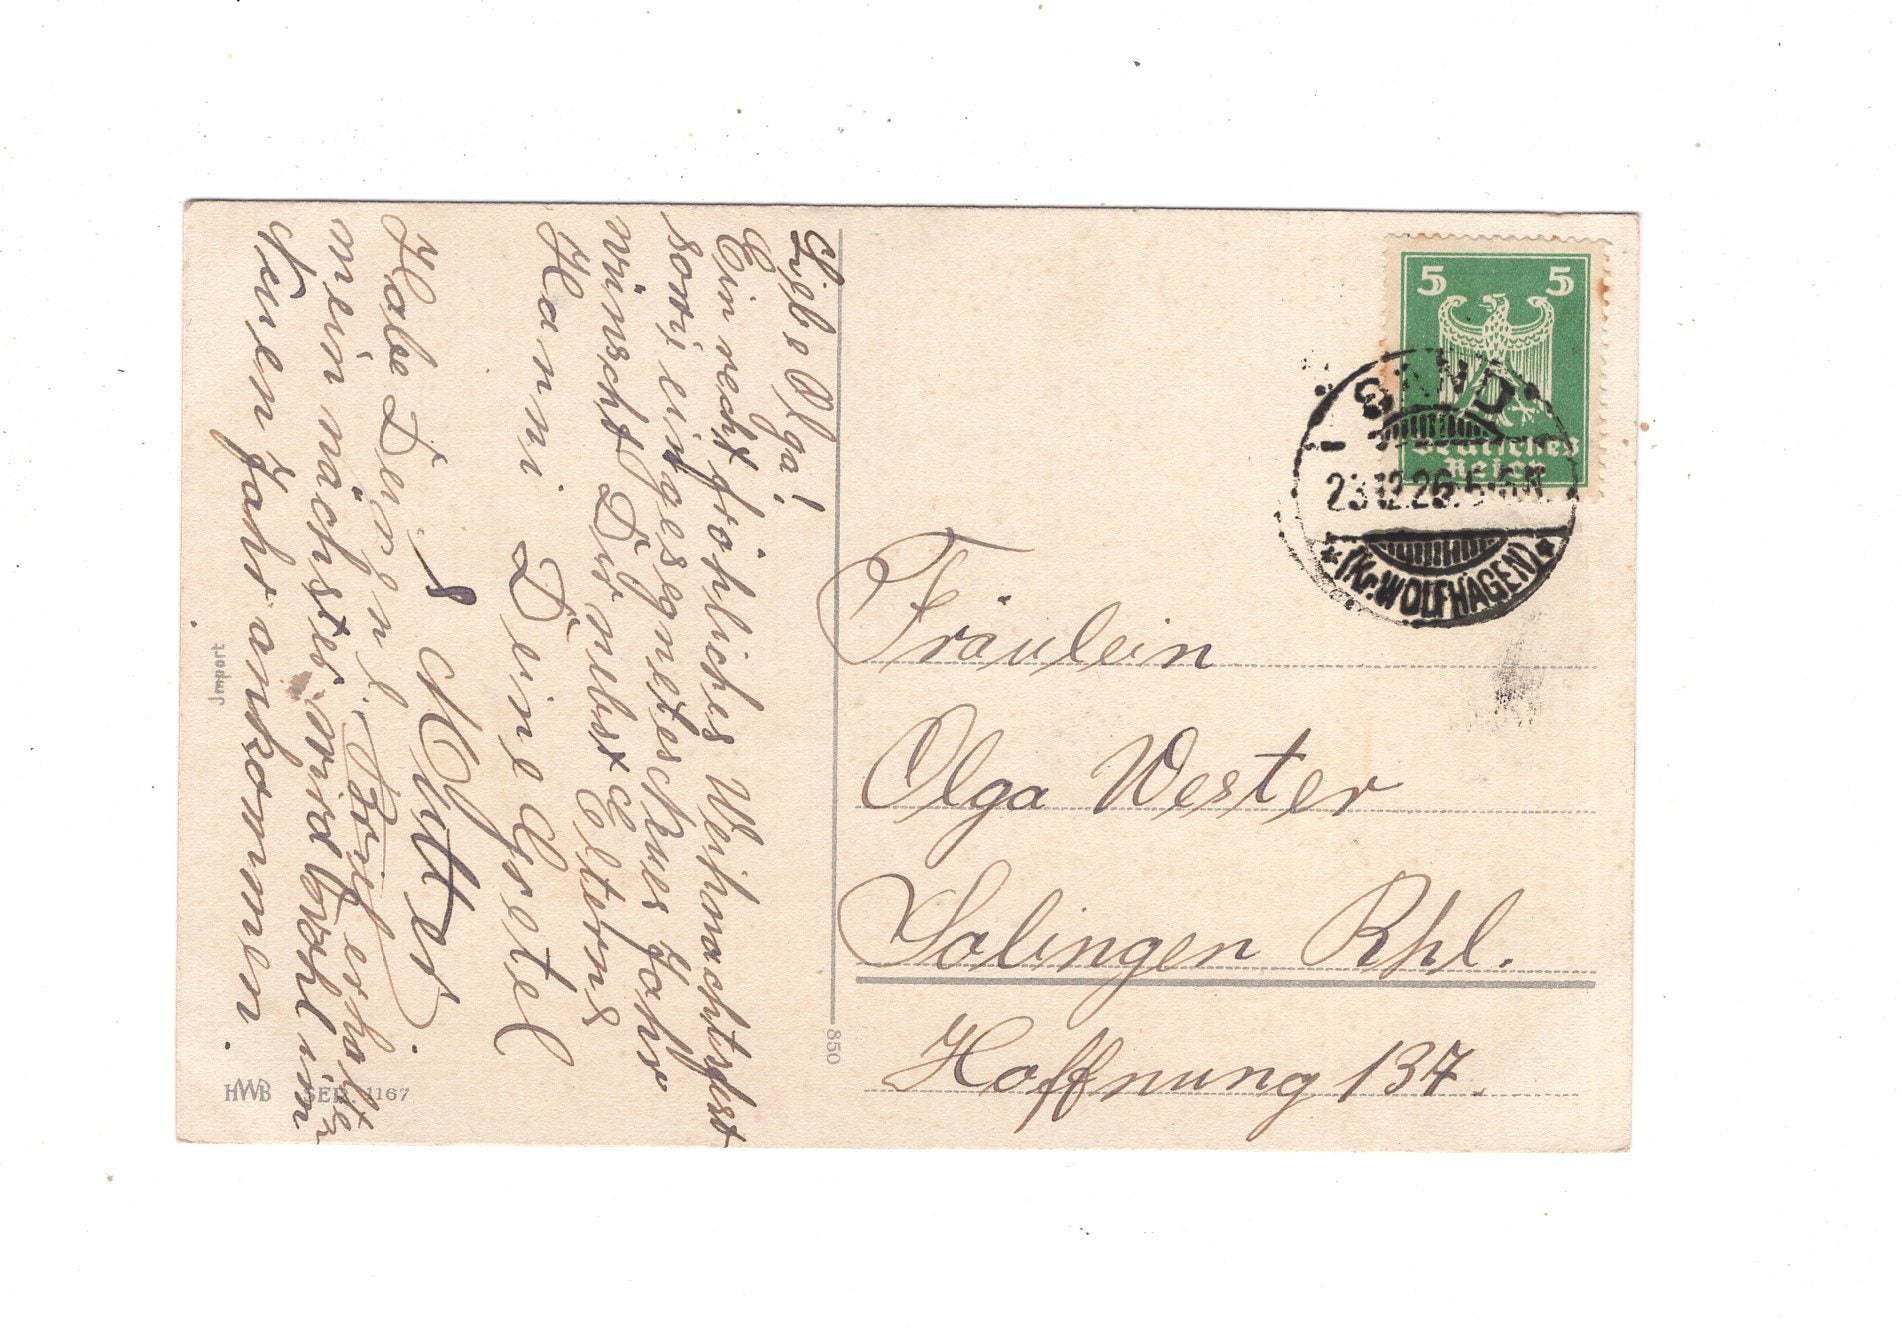 Liebe Olga!
Ein recht fröhliches Weihnachtsfest
sowie ein gesegnetes neues Jahr
wünscht Dir nebst Eltern &
Hanni. Deine Gretel
& Mutter.
Habe Deinen l. Brief erhalten
mein nächster wird wohl im
Neuen Jahr ankommen.
Fräulein
Olga Wester
Solingen Rhl.
Hoffnung 137.
5 5
Deutsches
Reich
SAND
23.12.26.5-6N
* (Kr. WOLFHAGEN) *
850
Import
HWB SER. 1167